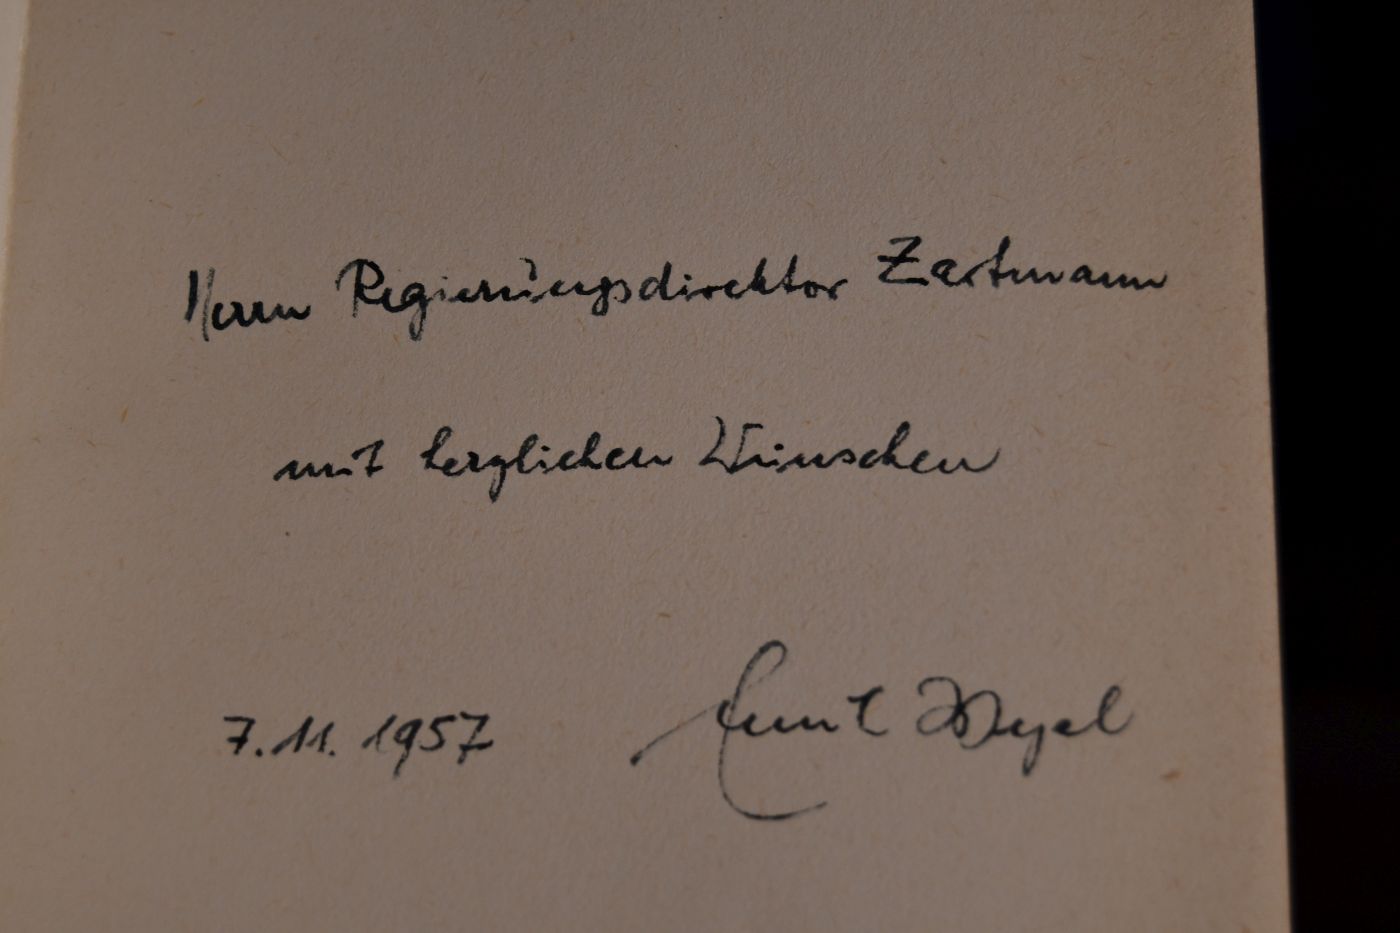 Herrn Regierungsdirektor Zartmann
mit herzlichen Wünschen
7.11.1957